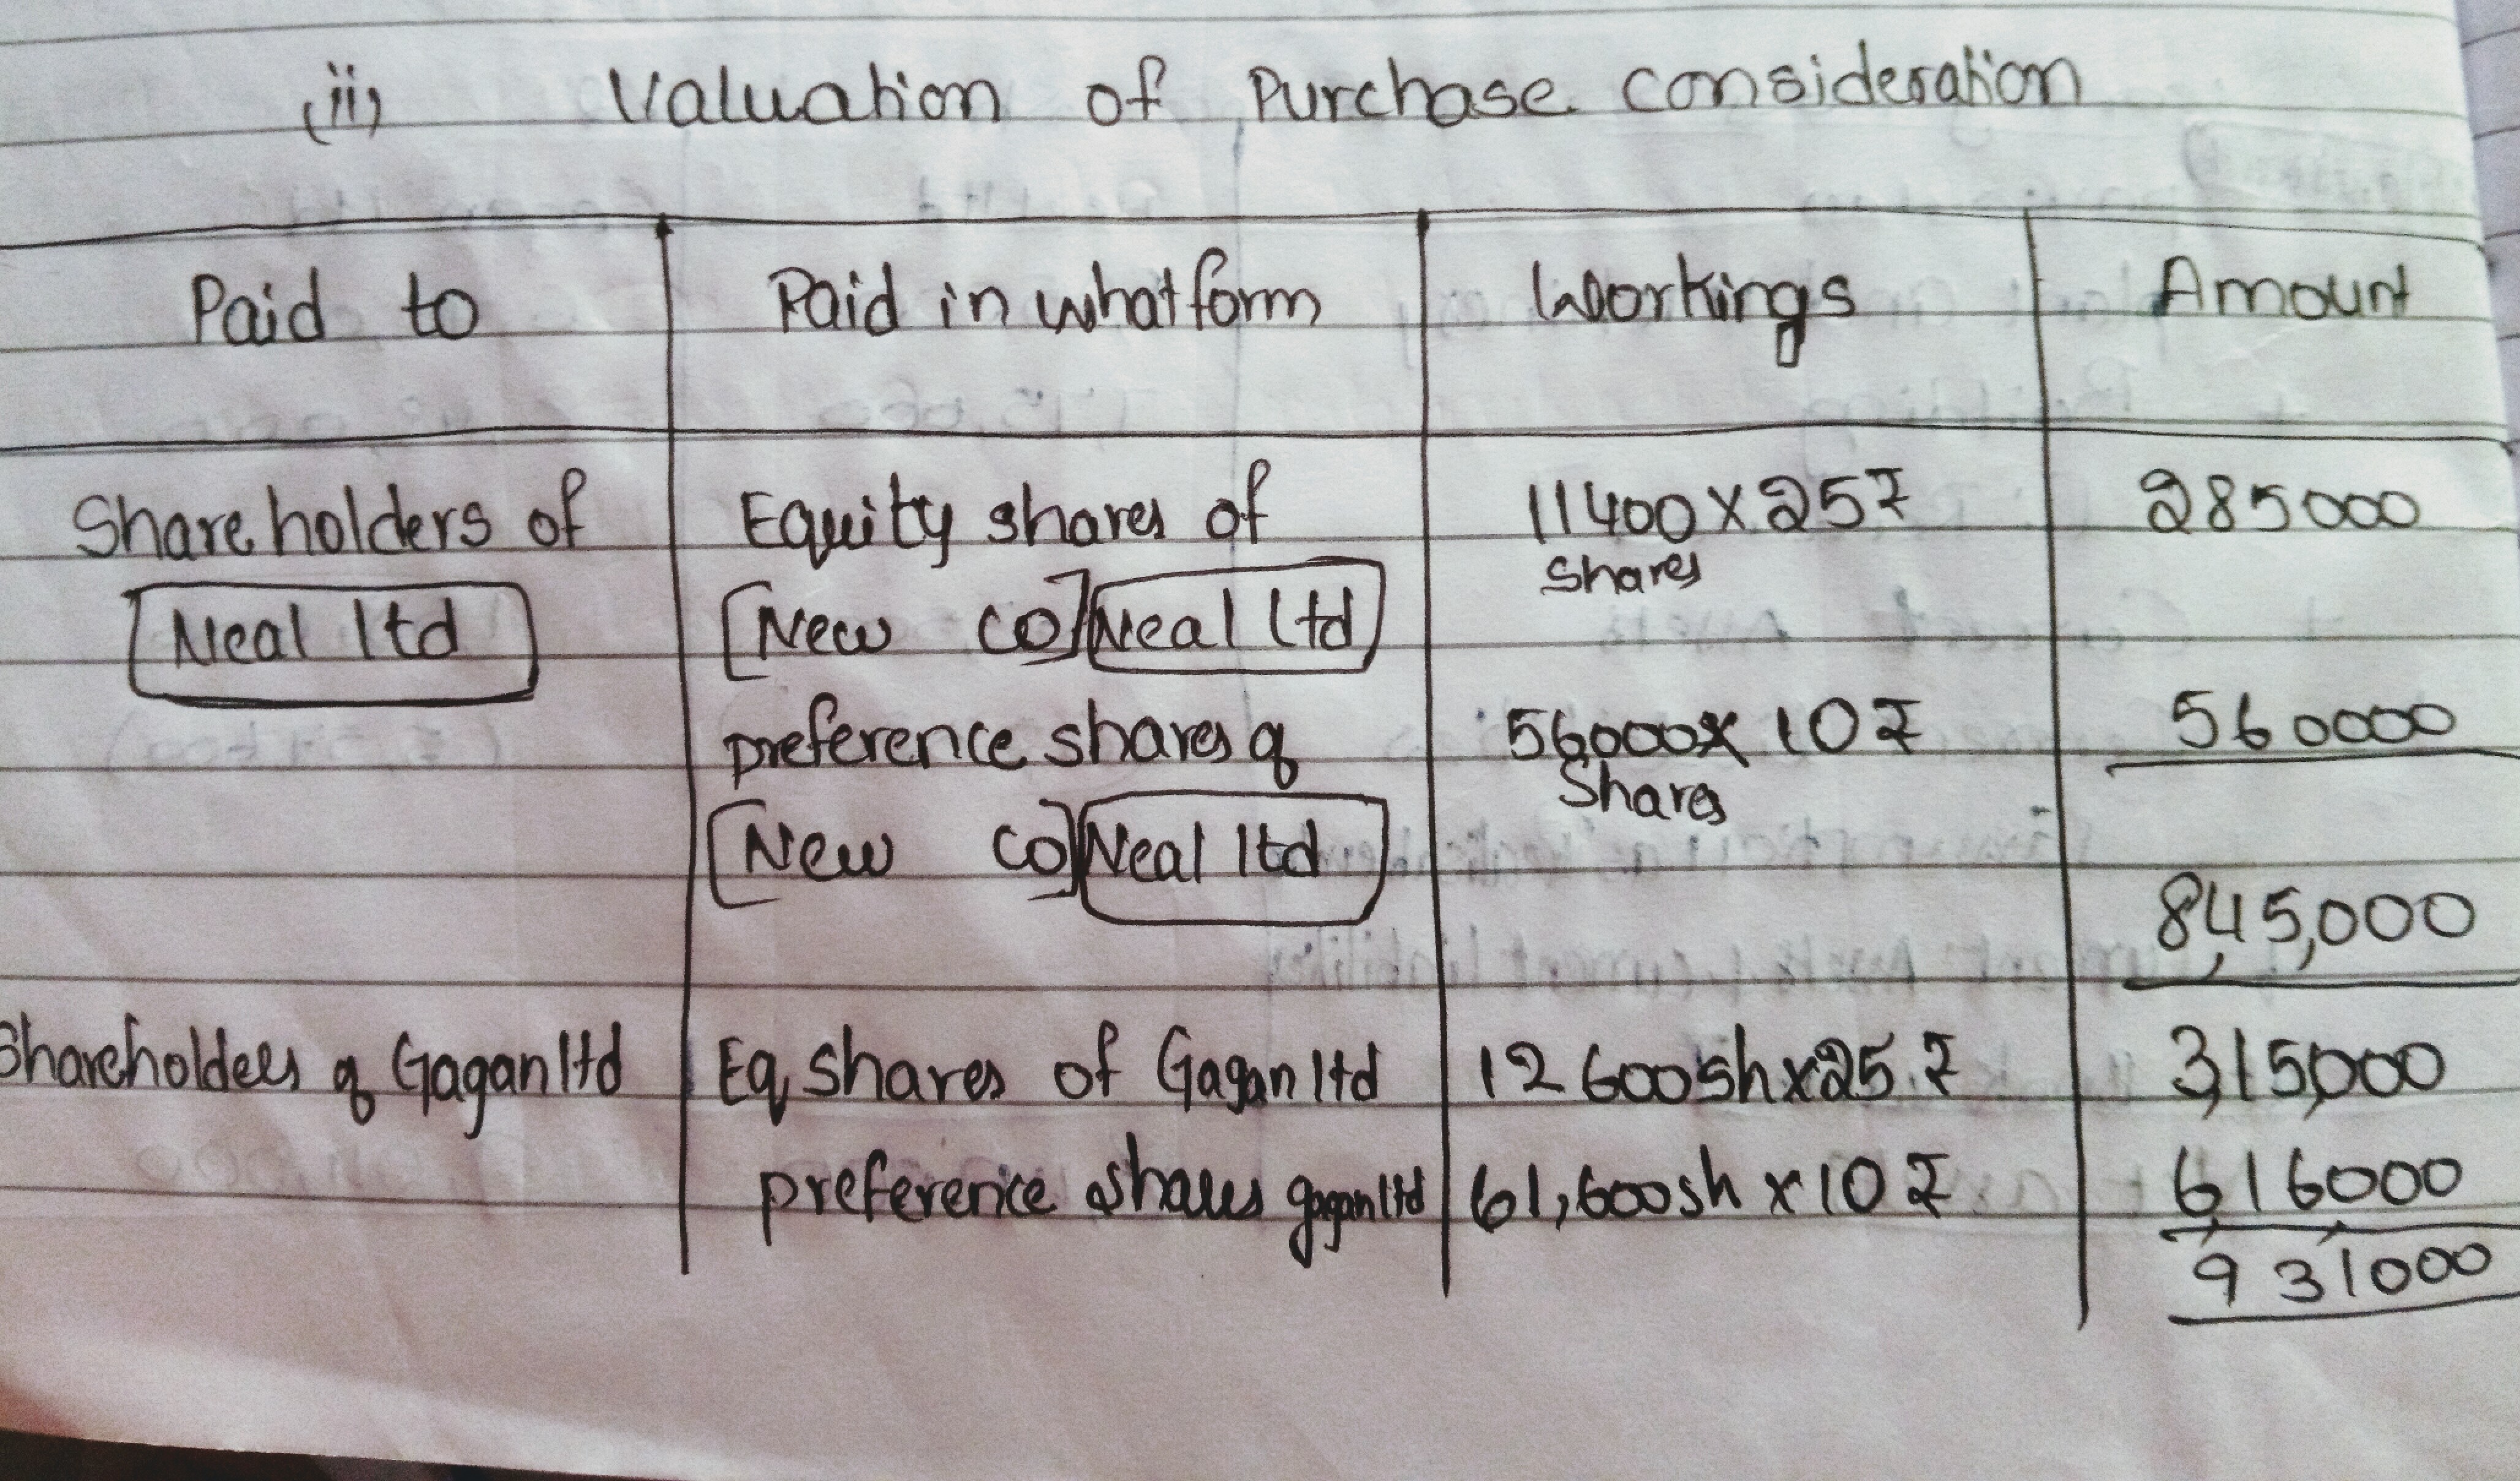 (ii) Valuation of Purchase consideration
Paid to Paid in what form Workings Amount
Shareholders of Equity shares of 11400 x 25₹ 285000
shares
Neal ltd [New co] Neal ltd
preference shares of 56000x 10₹ 560000
Shares
[New co] Neal ltd
845,000
Shareholders of Gagan ltd Eq shares of Gagan ltd 12600sh x 25 ₹ 315000
preference shares gagan ltd 61,600sh x 10 ₹ 616000
931000